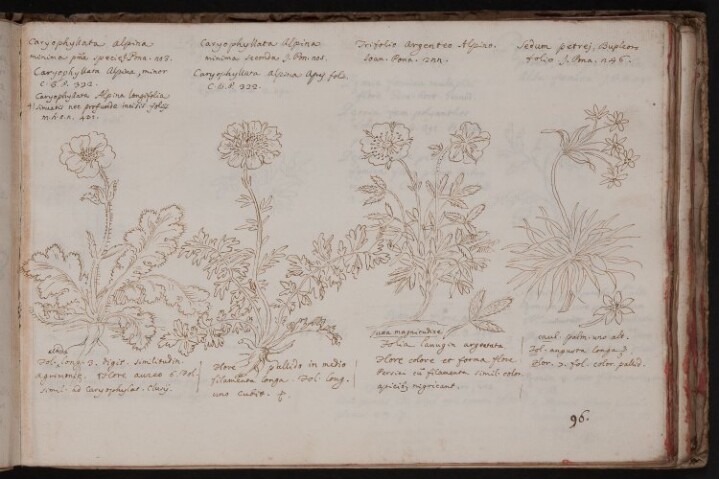 Caryophyllata Alpina
minima pña species J. Pona. 118.
Caryophyllata Alpina, minor
C.B.P. 322.
Caryophyllata Alpina longifolia
sinuatis nec profunde incisis folijs
401.
Caryophyllata Alpina
minima secunda J. Pon.
Caryophyllata Alpina Apij folio
C.B.P. 322.
Trifolio Argenteo Alpino.
Joan. Pona.
Sedum petrej, Bupleuri
folio J. Pona.
Fol. long. 3. digit. similitudin
agrimoniæ. Flore aureo 6. Fol
simil. is Caryophyl. Clusij.
Flore pallido in medio
filamenta longa. Fol. long.
uno cubit.
sua magnitudine
Folia lanugin argentata
Flore colore et forma flore
Persici cũ filamenta simil. color
apicib, nigricant.
caul. palm. uno alt.
Fol. angusta longa
Flor. fol. color pallid.
96.